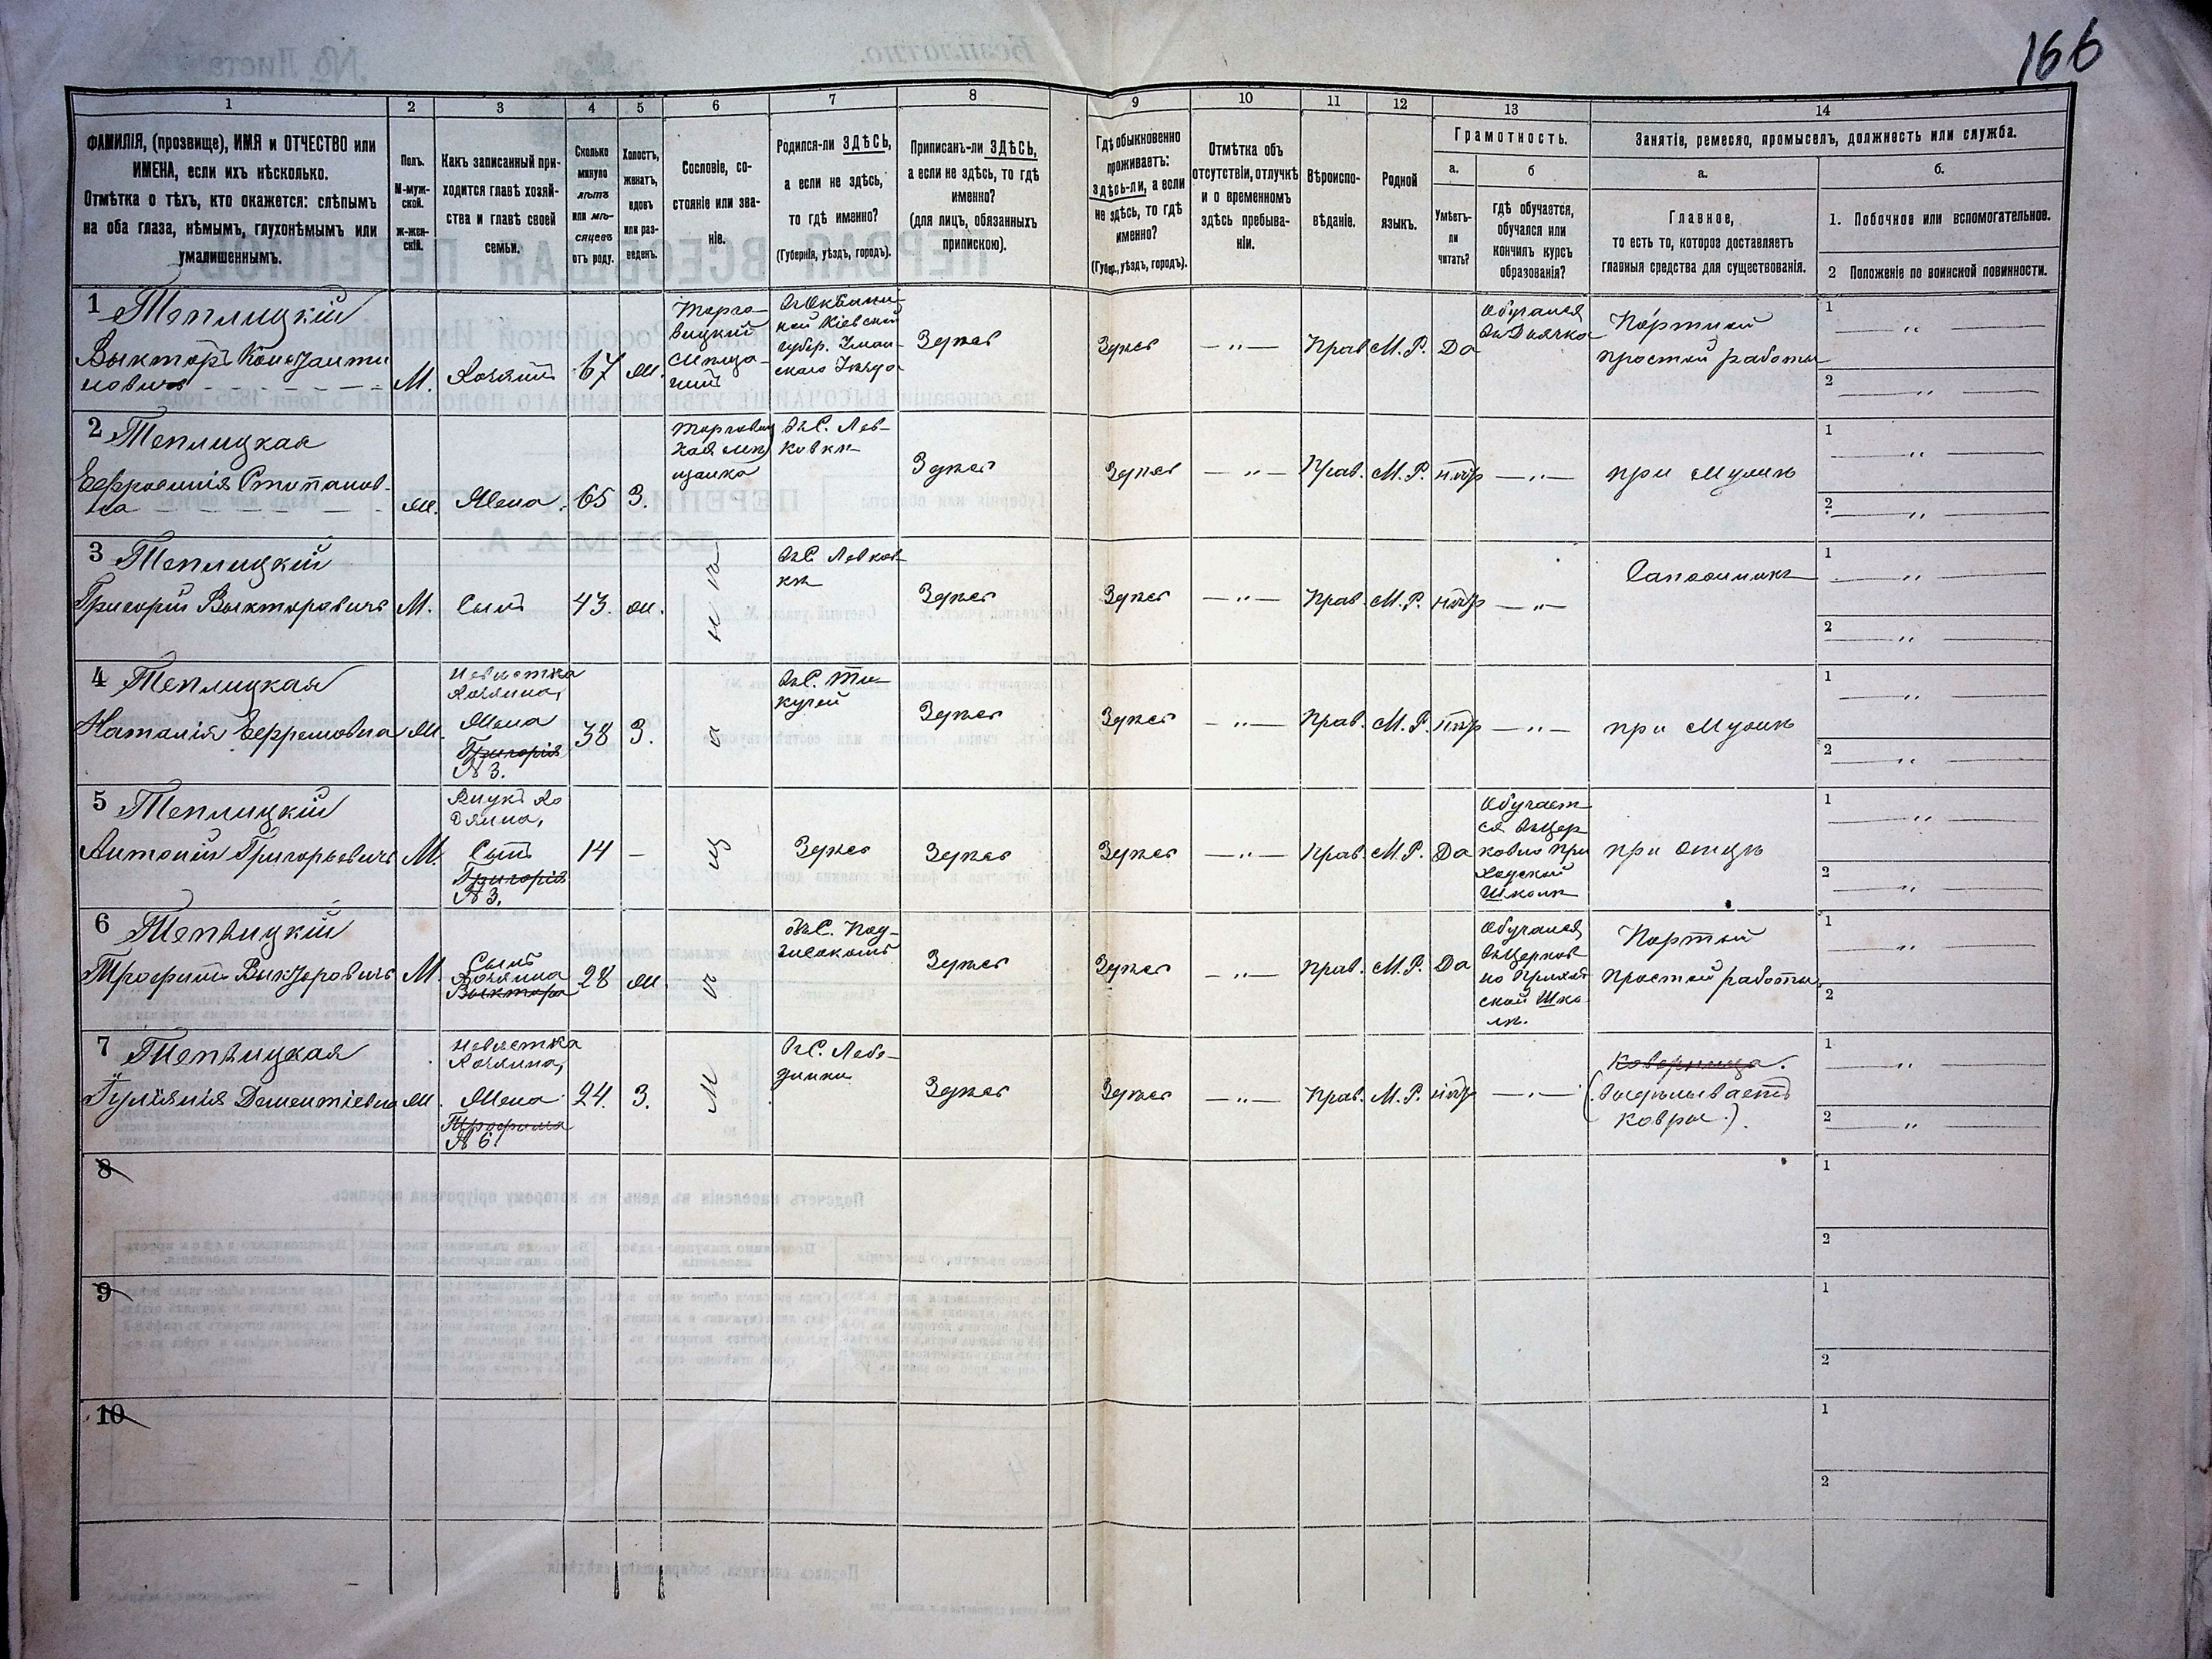 166
1
2
3
4
5
6
7
8
9
10
11
12
13
14
ФАМИЛІЯ, (прозвище), ИМЯ и ОТЧЕСТВО или
ИМЕНА, если ихъ нѣсколько.
Отмѣтка о тѣхъ, кто окажется: слѣпымъ
на оба глаза, нѣмымъ, глухонѣмымъ или
умалишеннымъ.
Полъ.
М-муж-
ской.
ж-жен-
скій.
Какъ записанный при-
ходится главѣ хозяй-
ства и главѣ своей
семьи.
Сколько
минуло
лѣтъ
или мѣ-
сяцевъ
отъ роду.
Холостъ,
женатъ,
вдовъ
или раз-
веденъ.
Сословіе, со-
стояніе или зва-
ніе.
Родился-ли ЗДѢСЬ,
а если не здѣсь,
то гдѣ именно?
(Губернія, уѣздъ, городъ).
Приписанъ-ли ЗДѢСЬ,
а если не здѣсь, то гдѣ
именно?
(для лицъ, обязанныхъ
припискою).
Гдѣ обыкновенно
проживаетъ:
здѣсь-ли, а если
не здѣсь, то гдѣ
именно?
(Губер., уѣздъ, городъ).
Отмѣтка объ
отсутствіи, отлучкѣ
и о временномъ
здѣсь пребыва-
ніи.
Вѣроиспо-
вѣданіе.
Родной
языкъ.
Грамотность.
а.
Умѣетъ-
ли
читать?
б
гдѣ обучается,
обучался или
кончилъ курсъ
образованія?
Занятіе, ремесло, промыселъ, должность или служба.
а.
Главное,
то есть то, которое доставляетъ
главныя средства для существованія.
б.
1. Побочное или вспомогательное.
2 Положеніе по воинской повинности.
1 Теплицкій
Выкторъ Константи
новичъ
М.
Хозяинъ
67
ж.
Торго-
вицкій
мѣща-
нинъ
Здѣсь
Здѣсь
— „ —
Прав.
М. Р.
Да
Обучался
Портной
простой работы
1 „
2 „
2 Теплицкая
Евфросинія Степанов-
на
ж.
Жена
65
З.
Въ С. Лев-
ковкѣ
Здѣсь
Здѣсь
— „ —
Прав.
М. Р.
нѣтъ
— „ —
при Мужѣ
1 „
2 „
3 Теплицкій
Григорій Выкторовичъ
М.
Сынъ
43.
ж.
Въ С. Левков-
кѣ
Здѣсь
Здѣсь
— „ —
Прав.
М. Р.
нѣтъ
— „ —
Сапожникъ
1 „
2 „
4 Теплицкая
Наталія Ефремовна
ж.
Невѣстка
Хозяина,
Жена
Григорія
№ 3.
38
З.
Здѣсь
Здѣсь
— „ —
Прав.
М. Р.
нѣтъ
— „ —
при Мужѣ
1 „
2 „
5 Теплицкій
Антоній Григорьевичъ
М.
Внукъ Хо
зяина,
Сынъ
Григорія
№ 3.
14
—
Здѣсь
Здѣсь
Здѣсь
— „ —
Прав.
М. Р.
Да
Обучает-
ся въ Цер
ковно При
ходской
Школѣ
при отцѣ
1 „
2 „
6 Теплицкій
Трофимъ Выкторовичъ
М.
Сынъ
Хозяина
Выктора
28
ж
Здѣсь
Здѣсь
— „ —
Прав.
М. Р.
Да
Обучался
въ Церков
но Приход
ской Шко
лѣ.
Портной
простой работы
1 „
2
7 Теплицкая
Іуліянія Дементіевна
ж.
Невѣстка
Хозяина,
Жена
Трофима
№ 6.
24.
З.
Въ С. Лебе-
динкѣ
Здѣсь
Здѣсь
— „ —
Прав.
М. Р.
нѣтъ
— „ —
(выдѣлываетъ
ковры.).
1 „
2 „
мѣщане
8
1
2
9
1
2
10
1
2